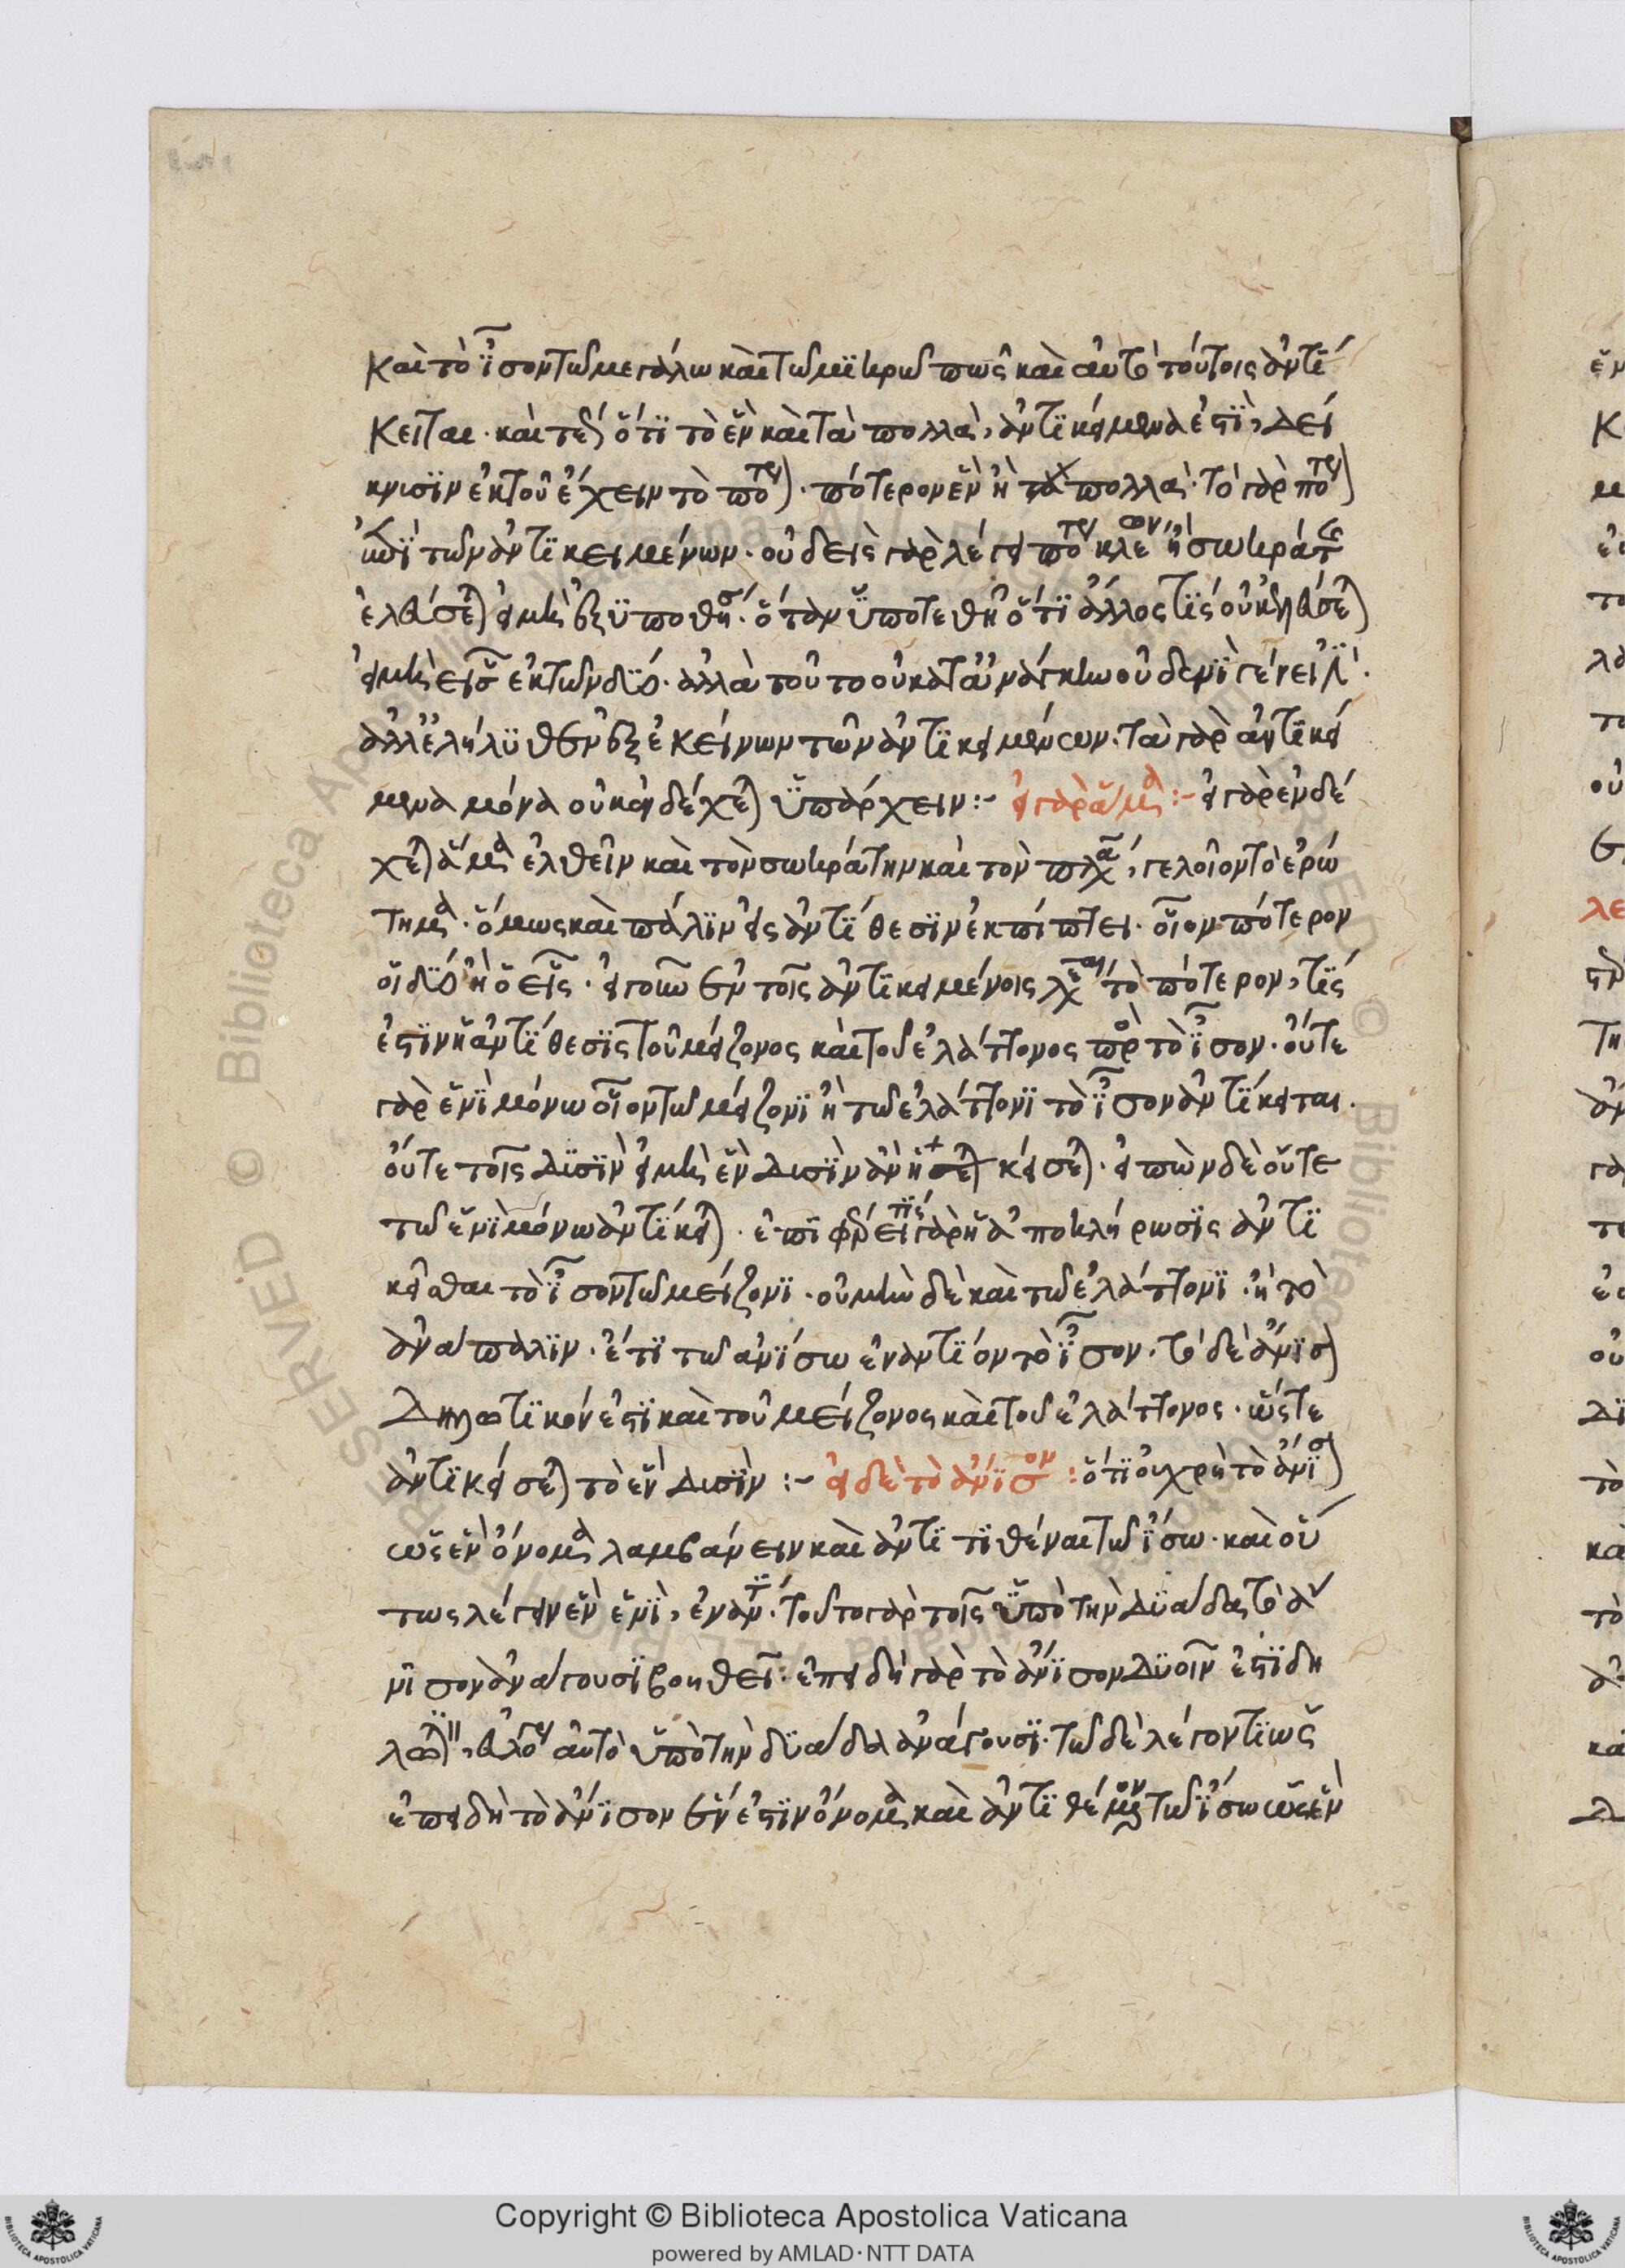 καὶ τὸ ἴσον τῶ μεγάλω καὶ τῶ μικρῶ πῶς καὶ αὐτὸ τούτοις ἀντί
κειται. καὶ γὰρ ὅτι τὸ ἓν καὶ τὰ πολλὰ, ἀντικείμενά ἐστι, δεί
κνυσιν ἐκ τοῦ ἔχειν τὸ πότερον. πότερον ἓν ἢ τὰ πολλά. τὸ γὰρ πότερον
ἐπὶ τῶν ἀντικειμένων. οὐδεὶς γὰρ λέγει πότερον κλέων ἢ σωκράτης
ἐλεύσεται εἰ μὴ ἐξ ὑποθέσεως. ὅταν ὑποτεθῆ ὅτι ἄλλος τίς οὐκ ἐλεύσεται
εἰ μὴ εἷς ἐκ τῶν δύο. ἀλλὰ τοῦτο οὐ κατ' ἀνάγκην οὐδενὶ γένει
ἀλλ' ἐλήλυθεν ἐξ ἐκείνων τῶν ἀντικειμένων. τὰ γὰρ ἀντικεί
μενα μόνα οὐκ ἐνδέχεται ὑπάρχειν :- εἰ γὰρ ἅμα :- εἰ γὰρ ἐνδέ
χεται ἅμα ἐλθεῖν καὶ τὸν σωκράτην καὶ τὸν πλάτωνα, γελοῖον τὸ ἐρώ
τημα. ὅμως καὶ πάλιν εἰς ἀντίθεσιν ἐκπίπτει. οἷον πότερον
οἱ δύο ἢ ὁ εἷς. εἰ γοῦν ἐν τοῖς ἀντικειμένοις λέγεται τὸ πότερον, τίς
ἐστιν ἡ ἀντίθεσις τοῦ μείζονος καὶ τοῦ ἐλάττονος πρὸς τὸ ἴσον. οὔτε
γὰρ ἑνὶ μόνω οἷον τῶ μείζονι ἢ τῶ ἐλάττονι τὸ ἴσον ἀντίκειται.
οὔτε τοῖς δυσὶν εἰ μὴ ἓν δυσὶν ἀντικείσεται. εἰπὼν δὲ οὔτε
τῶ ἑνὶ μόνω ἀντίκειται. ἐπιφέρει τίς γὰρ ἡ ἀποκλήρωσις ἀντι
κεῖσθαι τὸ ἴσον τῶ μείζονι. οὐ μὴν δὲ καὶ τῶ ἐλάττονι. ἢ τὸ
ἀνάπαλιν. ἔτι τῶ ἀνίσω ἐναντίον τὸ ἴσον. τὸ δὲ ἄνισον
δηλωτικόν ἐστι καὶ τοῦ μείζονος καὶ τοῦ ἐλάττονος. ὥστε
ἀντικείσεται τὸ ἓν δυσὶν :- εἰ δὲ τὸ ἄνισον : ὅτι οὐ χρὴ τὸ ἄνισον
ὡς ἓν ὄνομα λαμβάνειν καὶ ἀντιτιθέναι τῶ ἴσω. καὶ οὕ
τως λέγειν ἓν ἑνὶ, ἐναντίον. τοῦτο γὰρ τοῖς ὑπὸ τὴν δυάδα τὸ ἄ
νισον ἀνάγουσι βοηθεῖ. ἐπειδὴ γὰρ τὸ ἄνισον δυοῖν ἐστὶ δη
λωτικὸν, εὔλογον αὐτὸ ὑπὸ τὴν δυάδα ἀνάγουσι. τῶ δὲ λέγοντι ὡς
ἐπειδὴ τὸ ἄνισον ἕν ἐστιν ὄνομα καὶ ἀντιτίθεμεν τῶ ἴσω ὡς ἓν